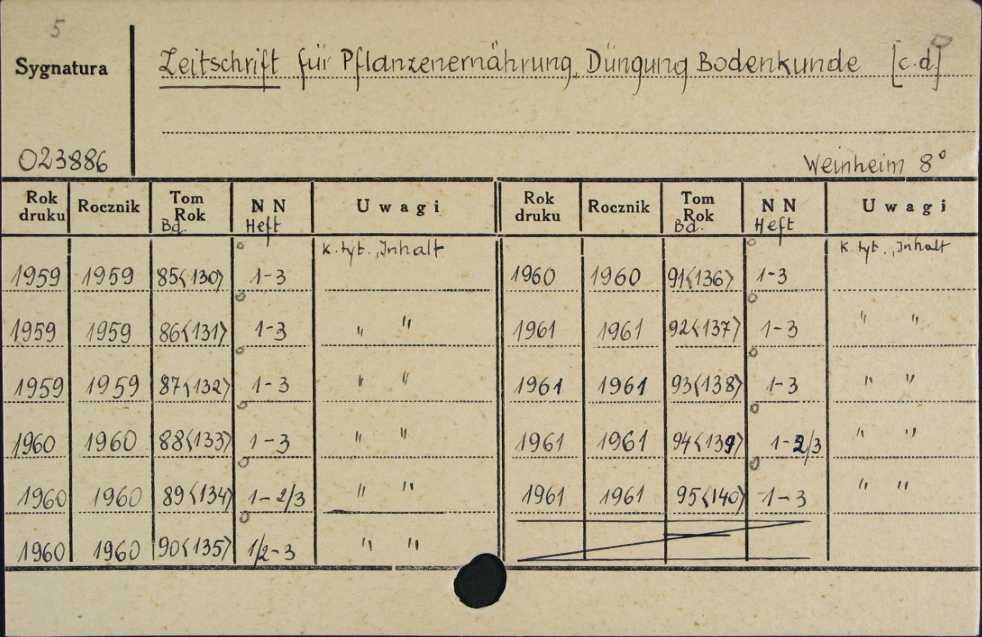 5
Sygnatura
Zeitschrift für Pflanzenernährung, Düngung Bodenkunde [c.d.]
023886
Weinheim 8°
Rok druku Rocznik Tom Rok Bd. NN Heft Uwagi Rok druku Rocznik Tom Rok Bd. NN Heft Uwagi
k. tyt., Inhalt k. tyt., Inhalt
1959 1959 85<130> 1-3 1960 1960 91<136> 1-3
1959 1959 86<131> 1-3 " " 1961 1961 92<137> 1-3 " "
1959 1959 87<132> 1-3 " " 1961 1961 93<138> 1-3 " "
1960 1960 88<133> 1-3 " " 1961 1961 94<139> 1-2/3 " "
1960 1960 89<134> 1-2/3 " " 1961 1961 95<140> 1-3 " "
1960 1960 90<135> 1/2-3 " "